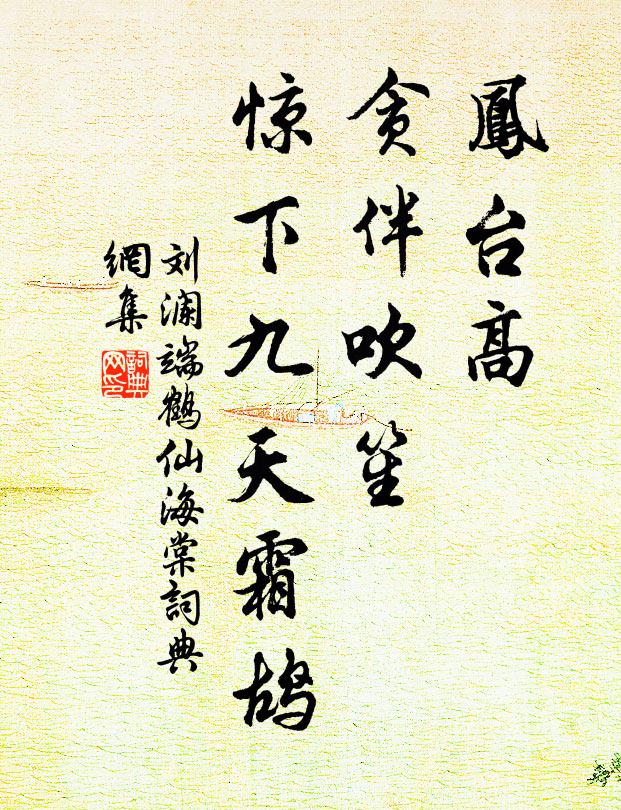 鳳台高
贪伴吹笙
惊下九天霜鸪
刘澜端鹤仙海棠詞典
網集
詞典
网印